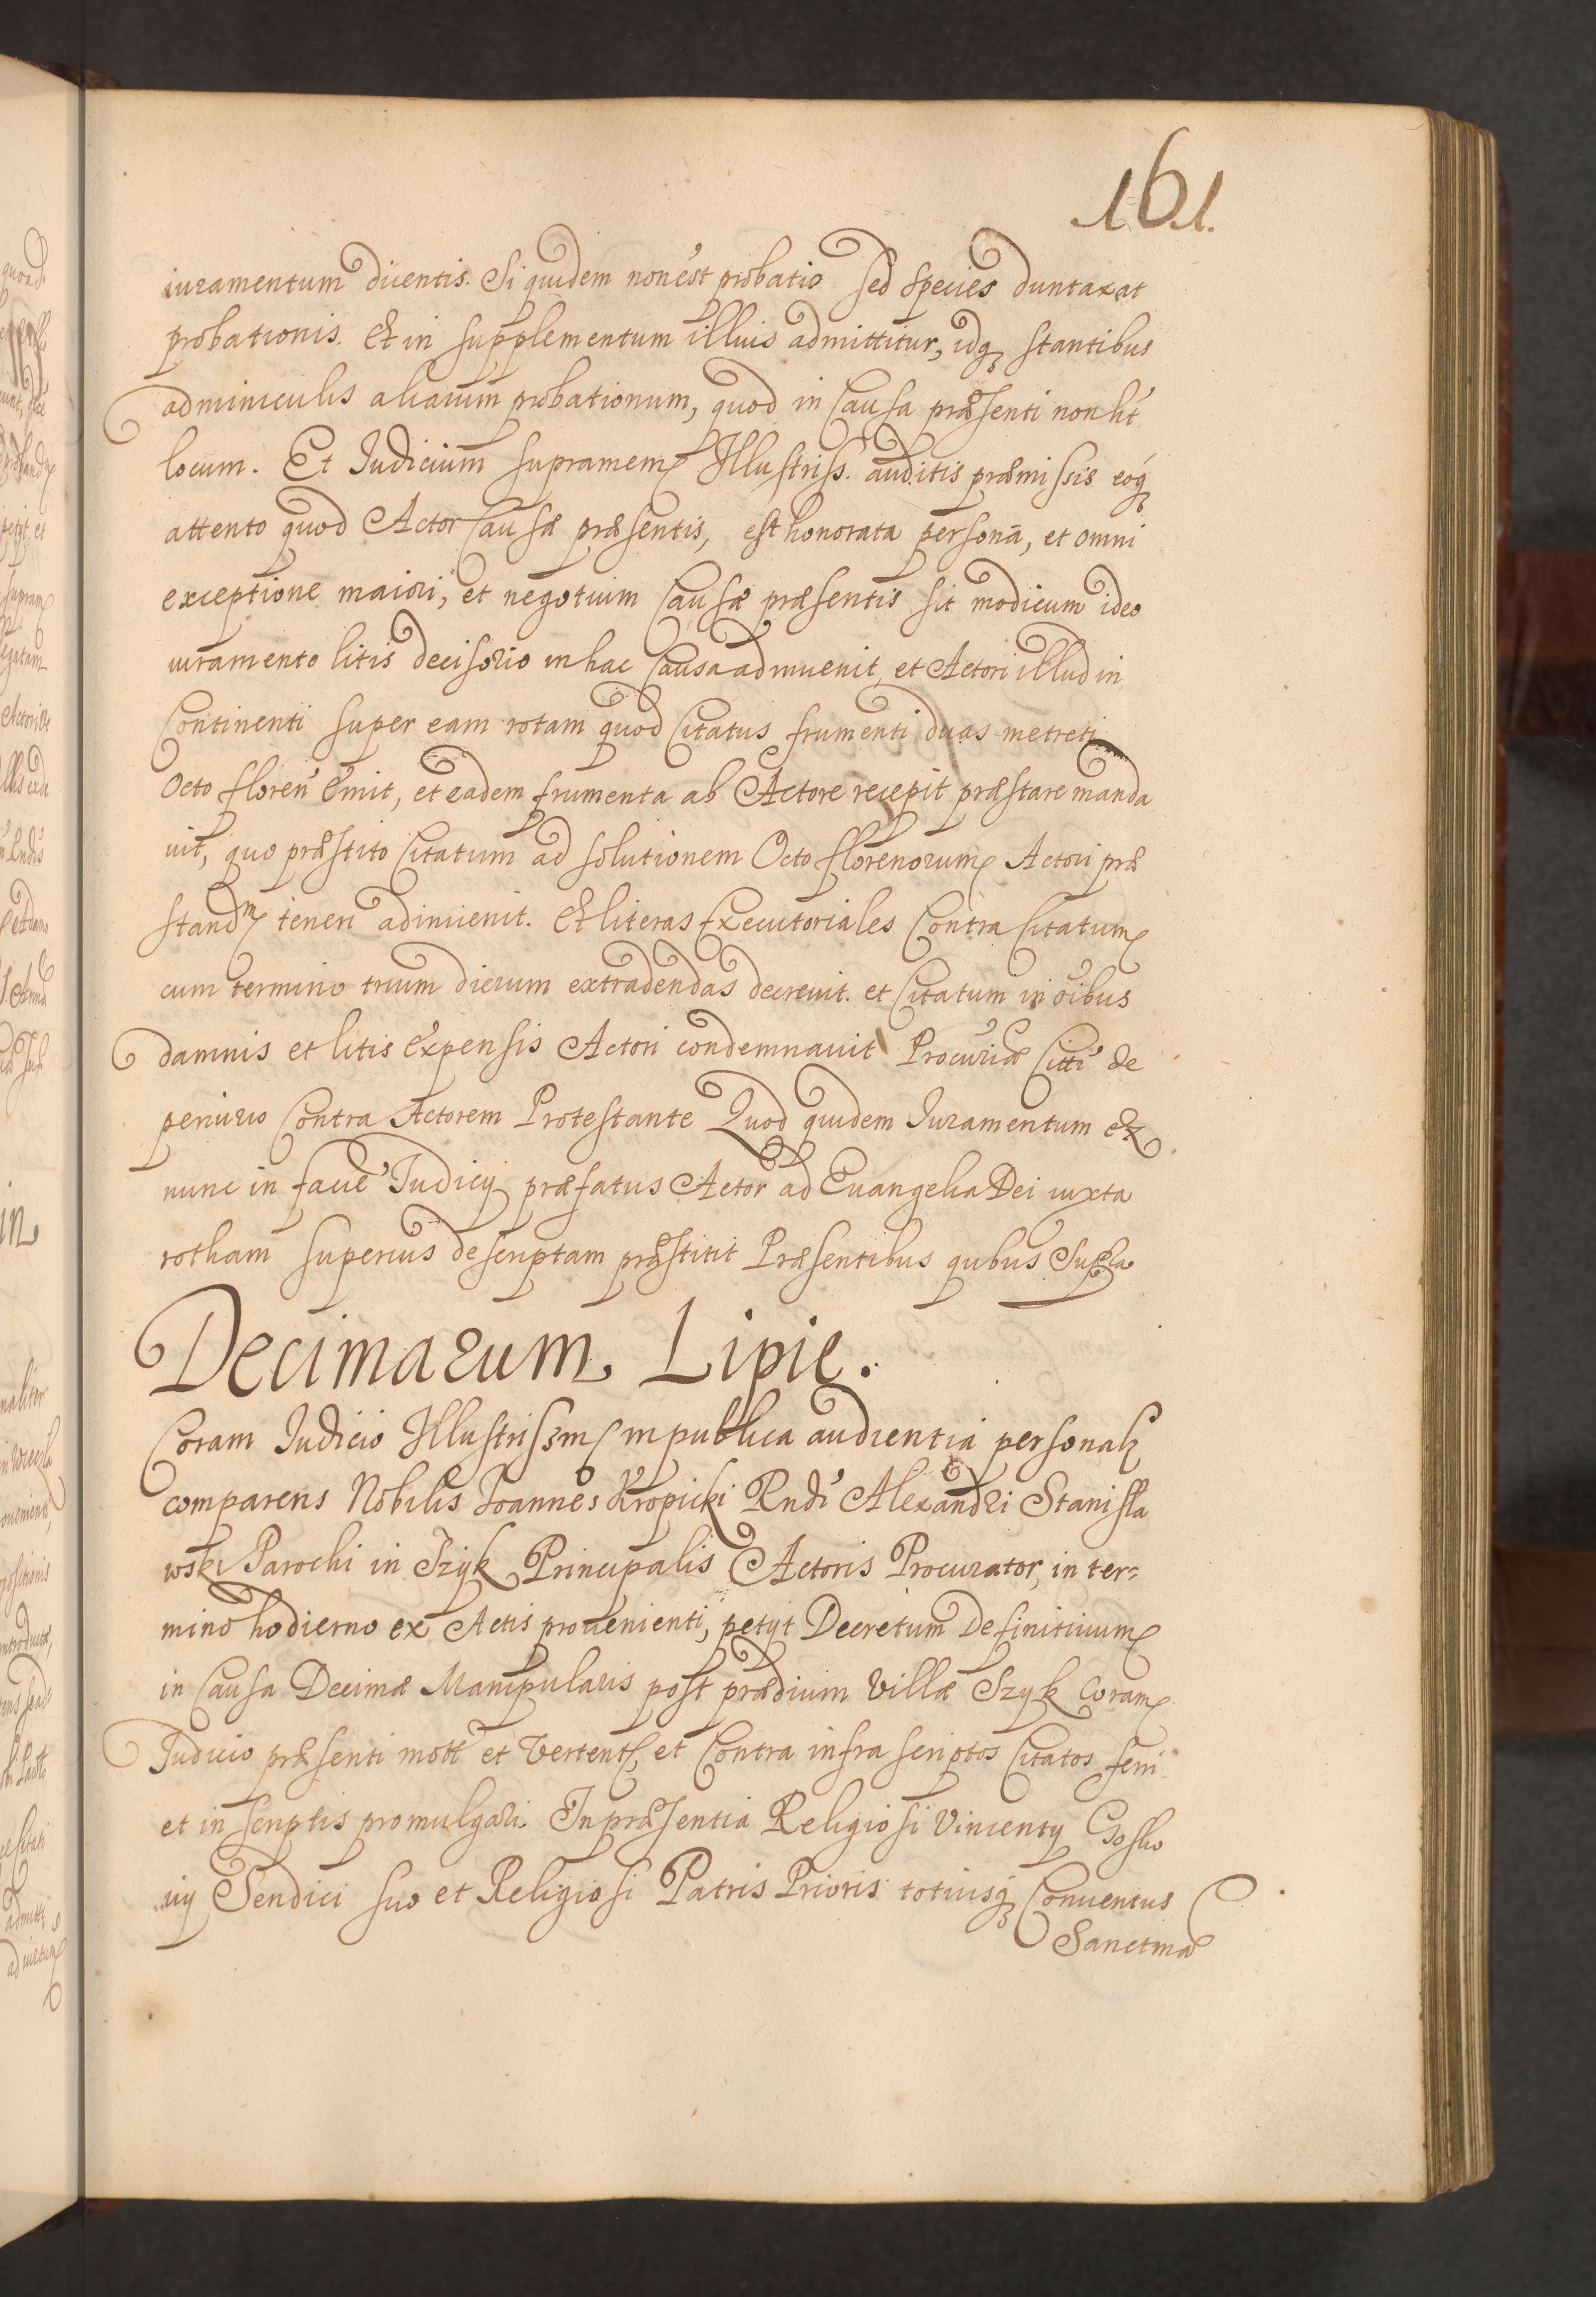 161.
iuramentum dicentis. Siquidem non est probatio sed species duntaxat
probationis. Et in supplementum illius admittitur, idq stantibus
adminiculis aliarum probationum, quod in Causa præsenti non ht
locum. Et Iudicium supramem Illustriss. auditis præmissis eoq
attento quod Actor Causæ præsentis, est honorata persona, et omni
exceptione maiori, et negotium Causæ præsentis sit modicum ideo
iuramento litis decisorio in hac Causa adinuenit, et Actori illud in
Continenti super eam rotam quod Citatus frumenti duas metreti
Octo floren emit, et eadem frumenta ab Actore recepit præstare manda
uit, quo præstito Citatum ad solutionem Octo florenorum Actori præ
standm teneri adinuenit. Et literas Executoriales Contra Citatum
cum termino trium dierum extradendas decreuit. et Citatum in oibus
damnis et litis expensis Actori condemnauit Procuria Citti de
periurio Contra Actorem Protestante Quod quidem Iuramentum ex
nunc in facie Iudicij præfatus Actor ad Euangelia Dei iuxta
rotham superius descriptam præstitit Præsentibus qubus Supra
Decimarum Lipie.
Coram Iudicio Illustrissm in publica audientia personalr
comparens Nobilis Ioannes Kropicki Rndi Alexandri Stanisła
wski Parochi in Szyk Principalis Actoris Procurator, in ter=
mino hodierno ex Actis prouenienti, petijt Decretum Definitiuum
in Causa Decimæ Manipularis post prædium Villæ Szyk Coram
Iudicio præsenti mott et Vertent, et Contra infrascriptos Citatos ferri
et in scriptis promulgari. In præsentia Religiosi Vincentij Gosko
uij Sendici suo et Religiosi Patris Prioris totiusq Conuentus
Sanctmæ